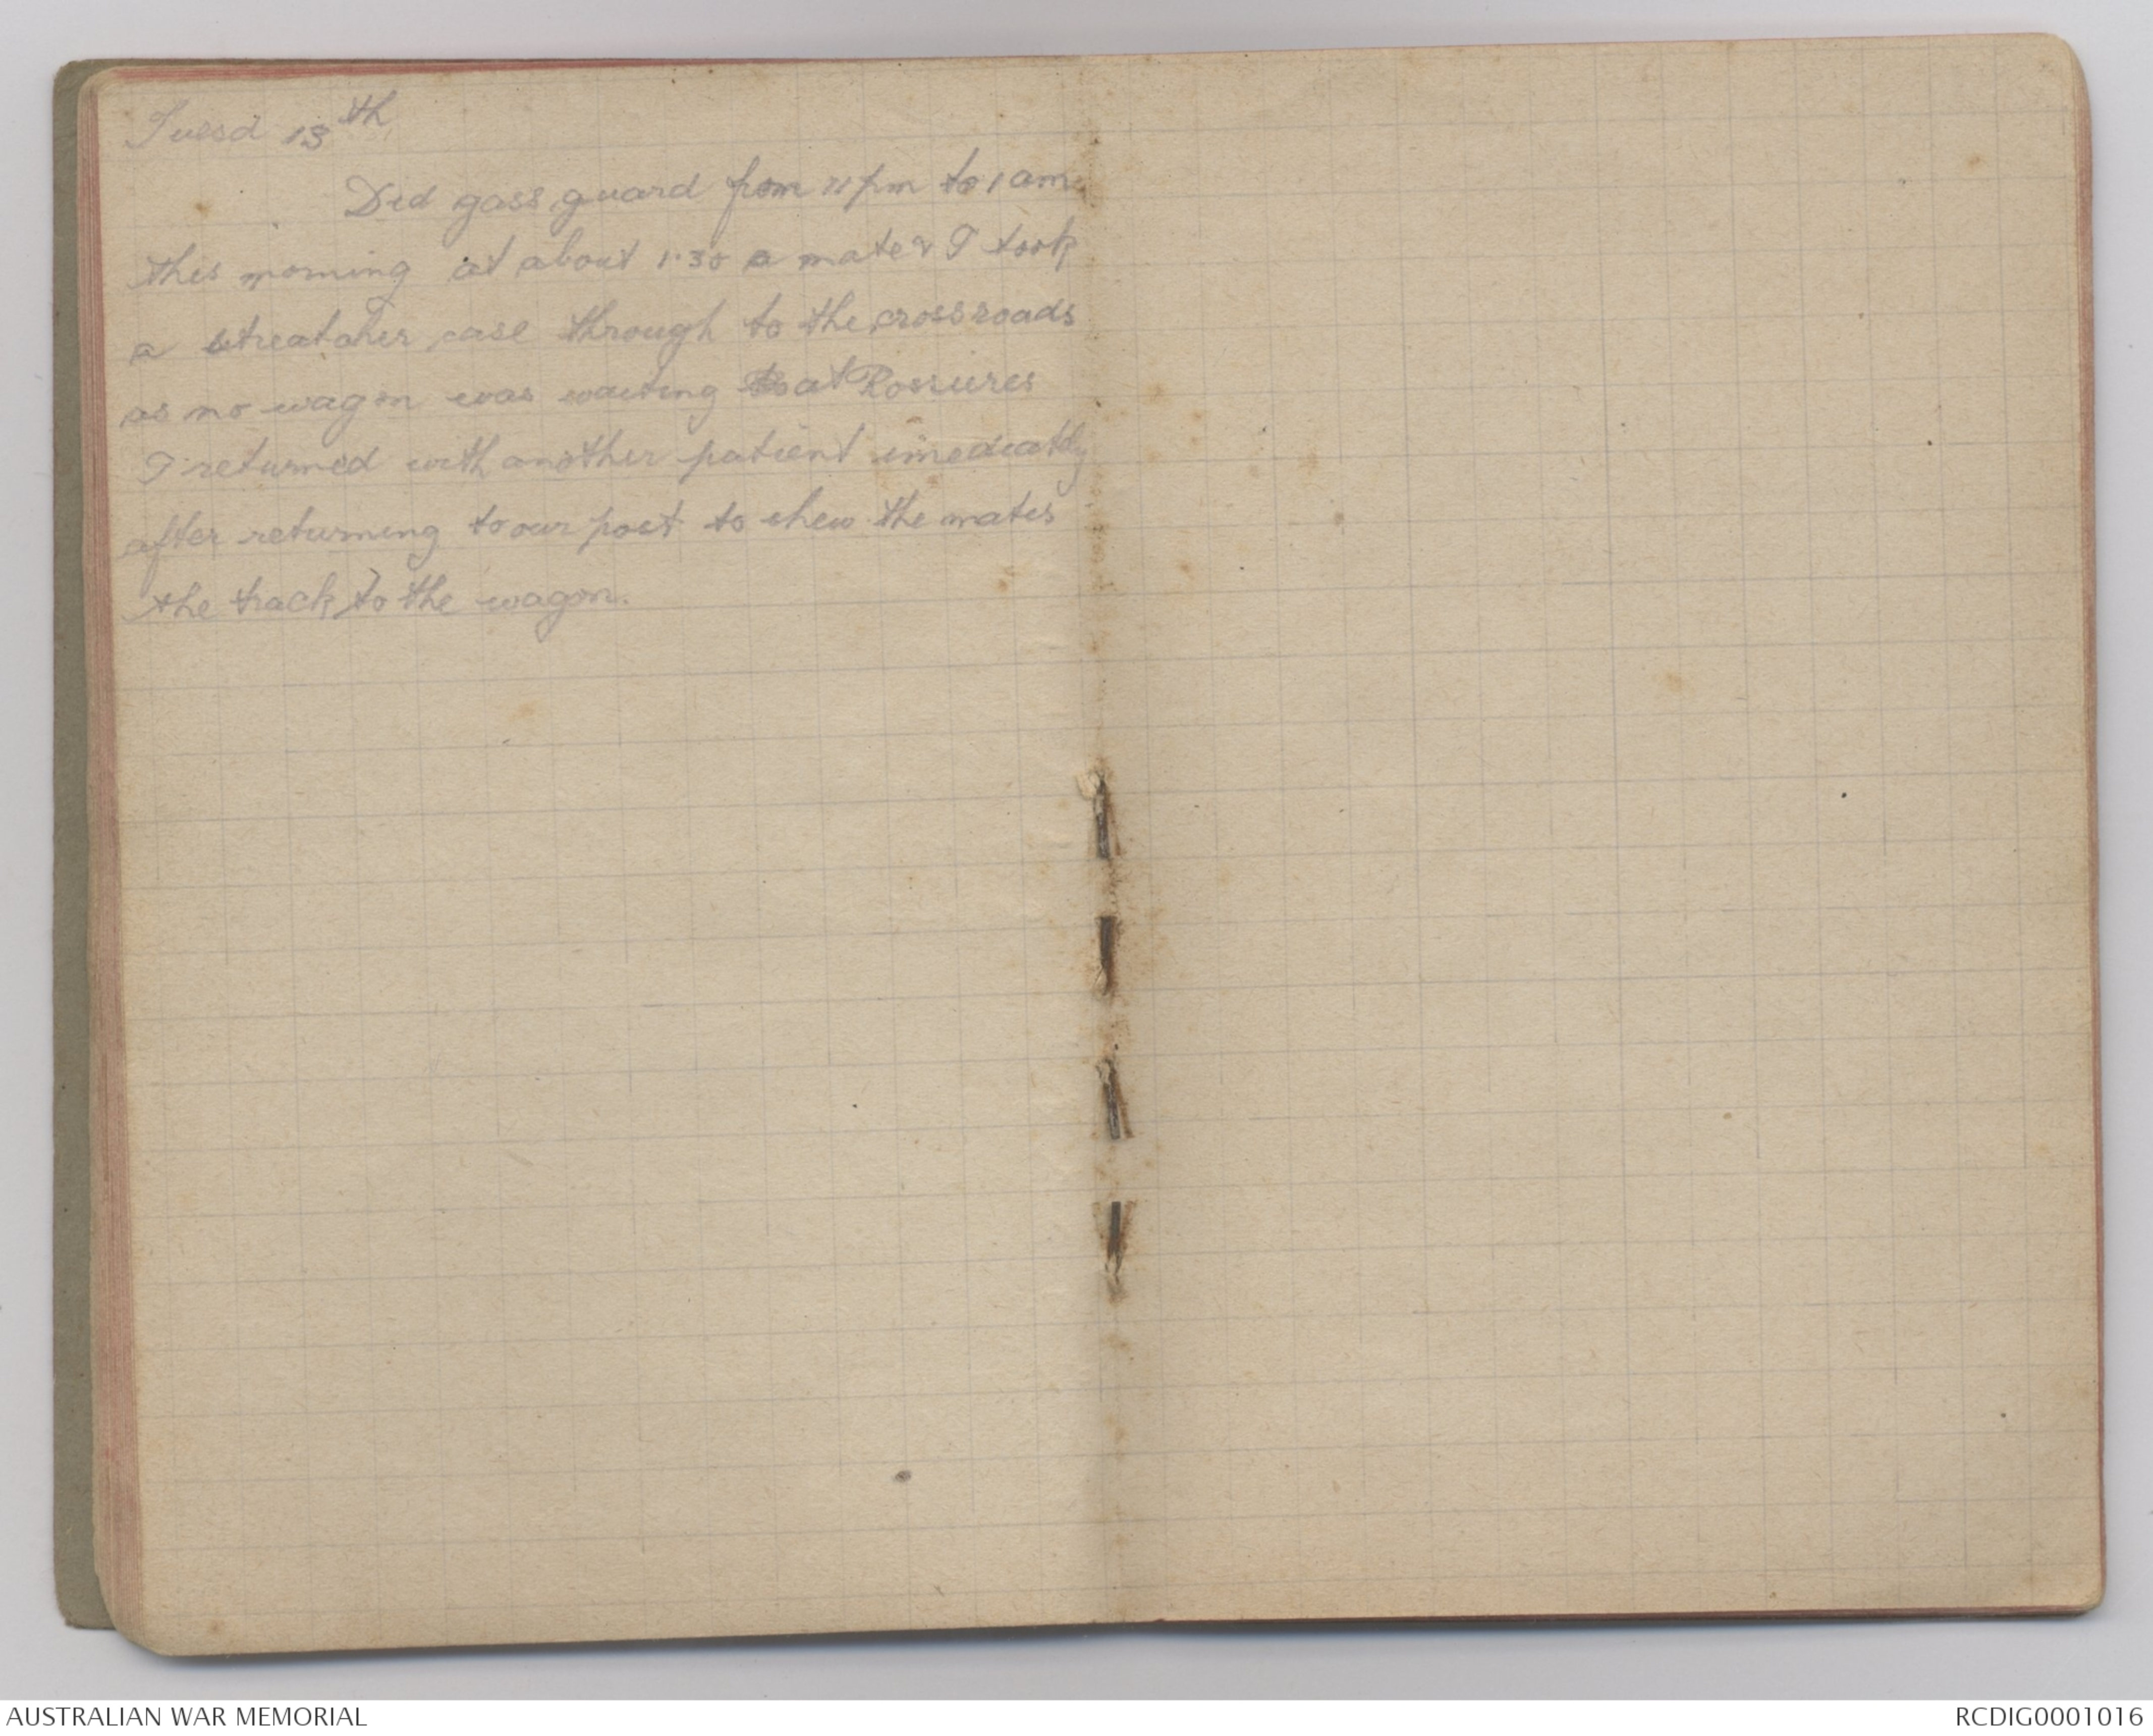 Tuesd 13th
Did gass guard from 11 pm to 1 am
this morning at about 1.30 a mate & I took
a streatcher case through to the crossroads
as no wagon was waiting at
I returned with another patient imediatly
after returning to our post to shew the mates
the track to the wagon.
AUSTRALIAN WAR MEMORIAL
RCDIG0001016